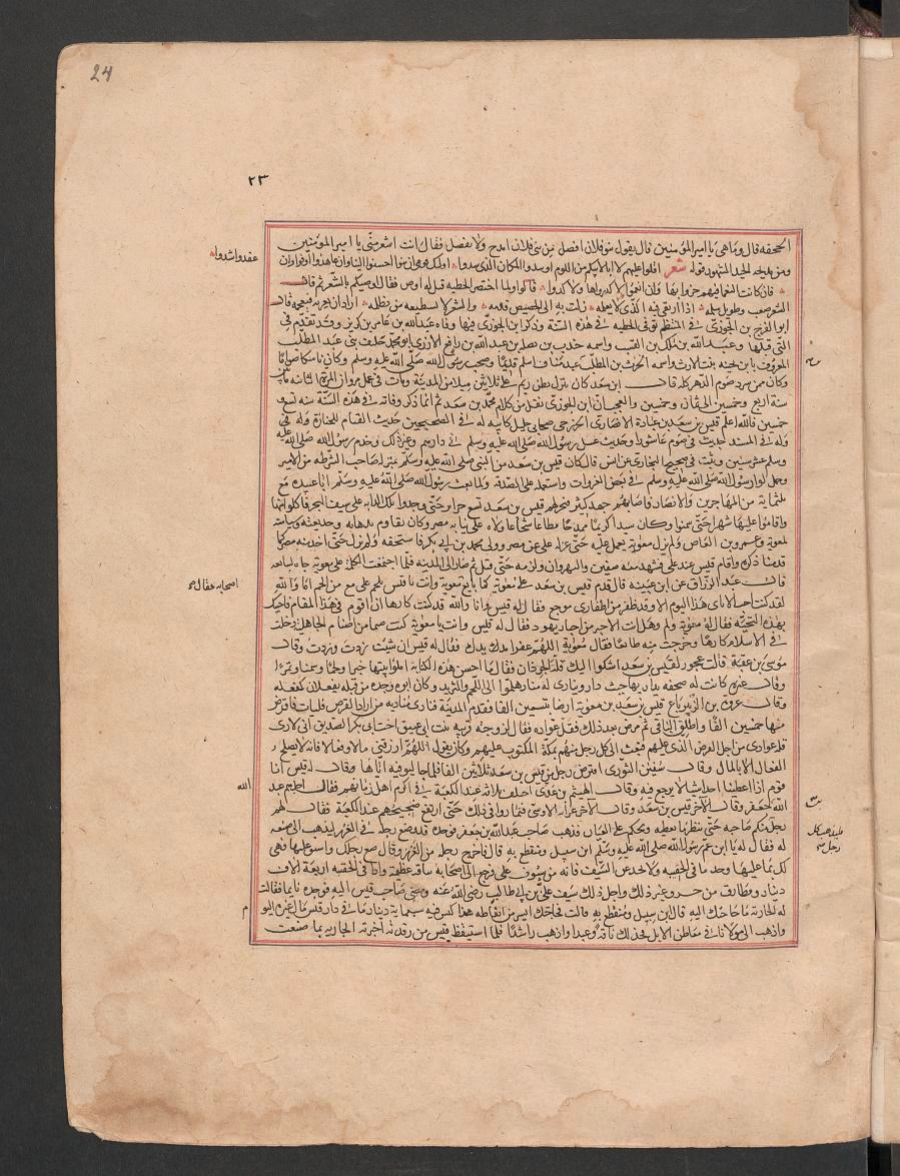 24
٢٣
المجحفة قال وما هي يا امير المؤمنين قال يقول بنو فلان افضل من بني فلان امدح ولا تفضل فقال انت اشعر مني يا امير المؤمنين
ومن مديحه الجيد المشهور قوله شعر اقلوا عليهم لا ابا لابيكم من اللوم او سدوا المكان الذي سدوا اولئك قومي ان بنوا احسنوا البنا وان عاهدوا اوفوا وان
عقدوا شدوا
فان كانت النعما فيهم جزوا بها وان انعموا لا كدروها ولا كدوا قالوا ولما احتضر الحطيه قيل له اوص فقال اوصيكم بالشعر ثم قال
الشعر صعب وطويل سلمه اذا ارتقى فيه الذي لا يعلمه زلت به الى الحضيض قدمه والشعر لا يسطيعه من يظلمه اراد ان يعربه فيعجمه قال
ابو الفرج بن الجوزي في المنتظم توفي الحطيه في هذه السنة وذكر ابن الجوزي فيها وفاة عبد الله بن عامر بن كريز وقد تقدم في
التي قبلها وعبد الله بن مالك بن القشب واسمه جندب بن نضله بن عبد الله بن رافع الازدي ابو محمد حليف بني عبد المطلب
المعروف بابن بحينه بنت الارت واسمه الحرث بن المطلب بن عبد مناف اسلم قديما وصحب رسول الله صلى الله عليه وسلم وكان ناسكا صواما
وكان ممن يسرد صوم الدهر كله قال ابن سعد كان ينزل بطن ريم على ثلاثين ميلا من المدينة ومات في عمل مروان المرة الثانية ما بين
سنة اربع وخمسين الى ثمان وخمسين والعجب ان ابن الجوزي نقل من كلام محمد بن سعد ثم انما ذكر وفاته في هذه السنة سنة تسع و
خمسين فالله اعلم قيس بن سعد بن عبادة الانصاري الخزرجي صحابي جليل كابيه له في الصحيحين حديث القيام للجنازة وله في
وله في المسند حديث في صوم عاشورا وحديث غسل رسول الله صلى الله عليه وسلم في دارهم وغير ذلك وخدم رسول الله صلى الله عليه
وسلم عشر سنين وثبت في صحيح البخاري عن انس قال كان قيس بن سعد من النبي صلى الله عليه وسلم بمنزلة صاحب الشرطه من الامير
وحمل لوا رسول الله صلى الله عليه وسلم في بعض الغزوات واستعمله على الصدقة ولما بعث رسول الله صلى الله عليه وسلم ابا عبيدة مع
ثلثماية من المهاجرين والانصار فاصابهم جهد كثير فنحر لهم قيس بن سعد تسع جزاير حتى وجدوا تلك الدابه على سيف البحر فاكلوا منها
واقاموا عليها شهرا حتى سمنوا وكان سيدا كريما ممدحا مطاعا شجاعا ولاه علي نيابة مصر وكان يقاوم بدهايه وخديعته وسياسته
لمعوية وعمرو بن العاص ولم يزل معوية يعمل عليه حتى عزله علي عن مصر وولى محمد بن ابي بكر فاستخفه ولم يزل حتى اخذ منه مصر كما
قدمنا ذكره واقام قيس عند علي فشهد معه صفين والنهروان ولزمه حتى قتل ثم صار الى المدينة فلما اجتمعت الكلمة على معوية جاه ليبايعه
اصحابه فقال
قال عبد الرزاق عن ابن عيينه قال قدم قيس بن سعد على معوية فقال له معوية وانت يا قيس تلجم علي مع من الجم اما والله
لقد كنت احب ان لا ياتي هذا اليوم الا وقد ظفر بك ظفر من اظفاري موجع فقال له قيس وانا والله قد كنت كارها ان اقوم في هذا المقام فاحييك
بهذه التحية فقال له معوية ولم وهل انت الا حبر من احبار يهود فقال له قيس وانت يا معوية كنت صنما من اصنام الجاهلية دخلت
في الاسلام كارها وخرجت منه طائعا فقال معوية اللهم غفرا مد يدك فقال له قيس ان شيت زدت وزدت وقال
موسى بن عقبة قالت عجوز لقيس بن سعد اشكوا اليك قلة الجرذان فقال ما احسن هذه الكناية املوا بيتها خبزا ولحما وسمنا وتمرا
وقال غيره كانت له صحفه يدار بها حيث دار وينادي له مناد هلموا الى اللحم والثريد وكان ابوه وجده من قبله يفعلان كفعله
وقال عروة بن الزبير باع قيس بن سعد من معوية ارضا بتسعين الفا فقدم المدينة فنادى مناديه من اراد القرض فليات فاقرض
منها خمسين الفا واطلق الباقي ثم مرض بعد ذلك فقل عواده فقال لزوجته قريبه بنت ابي عتيق اخت ابي بكر الصديق اني لارى
قلة عوادي من اجل الدين الذي عليهم فبعث الى كل رجل منهم بصكه المكتوب عليهم وكان يقول اللهم ارزقني مالا وفعالا فانه لا يصلح
الفعال الا بالمال وقال سفين الثوري اقترض رجل من قيس بن سعد ثلاثين الفا فلما جا ليوفيه اياها وقال له قيس انا
قوم اذا اعطينا احدا شيا لا نرجع فيه وقال الهيثم بن عدي اختلف ثلاثة عند الكعبة في اكرم اهل زمانهم فقال احدهم عبد
الله
الله بن جعفر وقال الآخر قيس بن سعد وقال الآخر عرابة الاوسي فتماروا في ذلك حتى ارتفع ضجيجهم عند الكعبة فقال لهم
رجل منكم صاحبه حتى ينظر ما يعطيه ويحكم على العيان فذهب صاحب عبد الله بن جعفر فوجده قد وضع رجله في الغرز ليذهب الى ضيعه
فليذهب كل
رجل
له فقال له يا ابن عم رسول الله صلى الله عليه وسلم ابن سبيل ومنقطع به قال فاخرج رجله من الغرز وقال ضع رجلك واستو عليها فهي
لك بما عليها وخذ ما في الحقيبه ولا تخدعن السيف فانه من سيوف علي فرجع الى اصحابه بناقه عظيمة واذا في الحقيبه اربعة الاف
دينار ومطارف من خز وغير ذلك واجل ذلك سيف علي بن ابي طالب رضي الله عنه ومضى صاحب قيس اليه فوجده نائما فقالت
له الجارية ما حاجتك اليه قال ابن سبيل ومنقطع به قالت فحاجتك ايسر من ايقاظه هذا كيس فيه سبعماية دينار ما في دار قيس مال غيره اليوم
واذهب الى مولانا في معاطن الابل فخذ لك ناقة وعبدا واذهب راشدا فلما استيقظ قيس من رقدته اخبرته الجارية بما صنعت